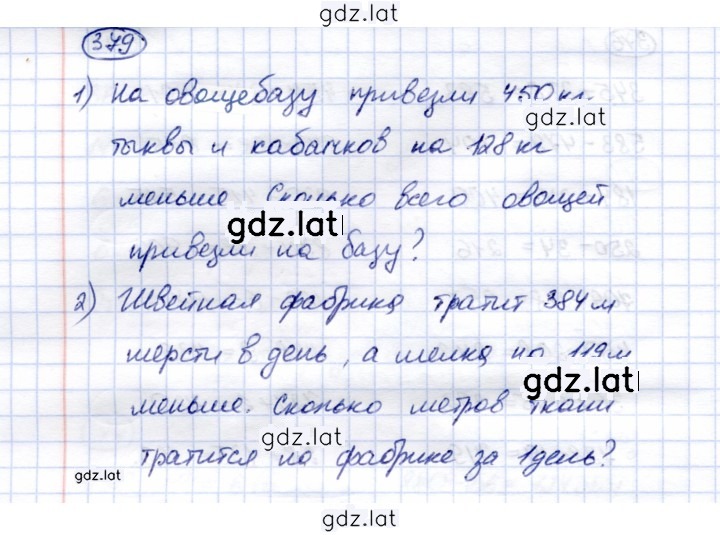 gdz.lat
379.
1) На овощебазу привезли 450 кг.
gdz.lat
тыквы и кабачков на 128 кг
меньше. Сколько всего овощей
gdz.lat
привезли на базу?
2) Швейная фабрика тратит 384 м
шерсти в день, а шелка на 119 м
gdz.lat
меньше. Сколько метров ткани
gdz.lat
тратится на фабрике за 1 день?
gdz.lat
gdz.lat